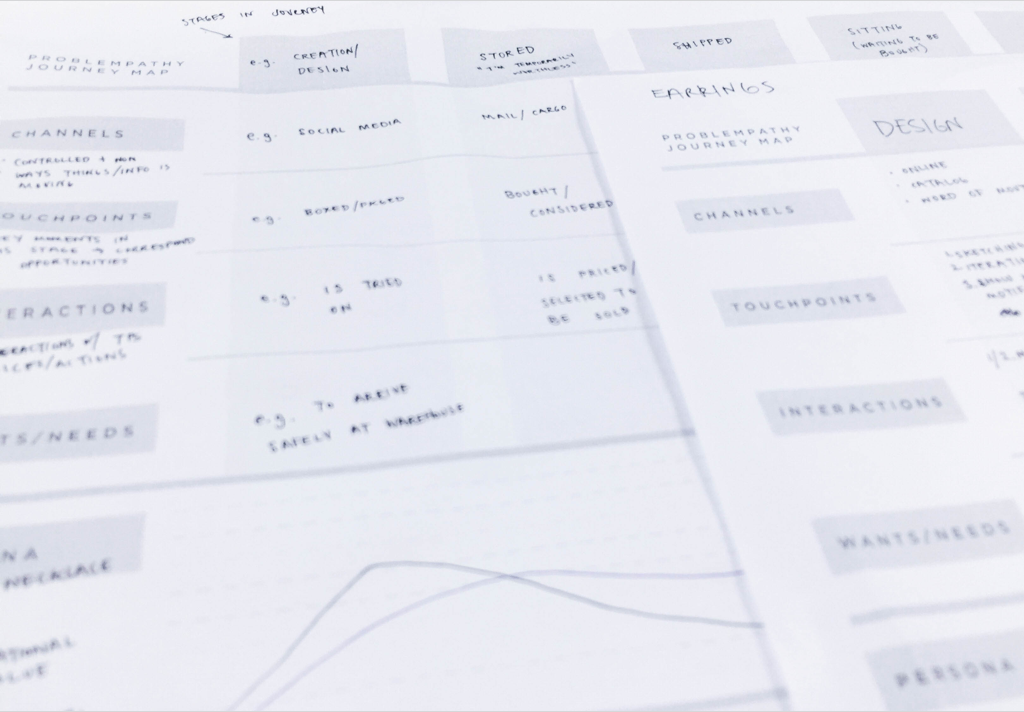 STAGES IN JOURNEY
PROBLEMPATHY
JOURNEY MAP
e.g. CREATION/
DESIGN
STORED
"I'M TEMPORARILY
WORTHLESS"
SHIPPED
SITTING
(WAITING TO BE
BOUGHT)
CHANNELS
CONTROLLED + NON
WAYS THINGS/INFO IS
MOVING
e.g. SOCIAL MEDIA
MAIL/CARGO
OUCHPOINTS
EY MOMENTS IN
STAGE + CORRESPOND
OPPORTUNITIES
e.g. BOXED/PRICED
BOUGHT/
CONSIDERED
ERACTIONS
ERACTIONS W/ TPS
ICES/ACTIONS
e.g. IS TRIED
ON
IS PRICED/
SELECTED TO
BE SOLD
TS/NEEDS
e.g. TO ARRIVE
SAFELY AT WAREHOUSE
NA
NECKLACE
ATIONAL
ALUE
EARRINGS
PROBLEMPATHY
JOURNEY MAP
DESIGN
CHANNELS
· ONLINE
· CATALOG
· WORD OF MOUT
TOUCHPOINTS
1. SKETCHIN
2. ITERATI
3.
INTERACTIONS
1/2.
WANTS/NEEDS
PERSONA